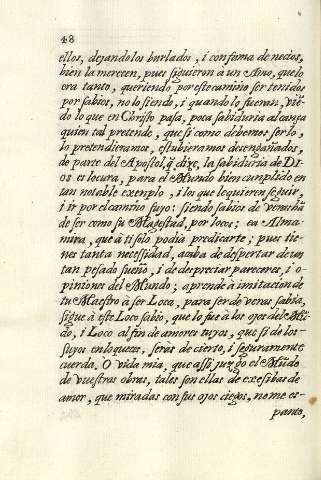 48
ellos, dejandolos burlados, i con fama de necios,
bien la merecen, pues siguieron à un Amo, que lo
era tanto, queriendo por este camino ser tenidos
por sabios, no lo siendo, i quando lo fueran, viē-
do lo que en Christo pasa, poca sabiduria alcança
quien tal pretende, que si como debemos ser lo,
lo pretendieramos, estubieramos desengañados,
de parte del Apostol, q̃ dize, la sabiduria de DI-
OS es locura, para el Mundo bien cumplido en
tan notable exemplo, i los que le quieren seguir,
i ir por el camino suyo: siendo sabios de
de ser como su Magestad, por locos; ea Alma
mira, que à ti solo podia predicarte; pues tie-
nes tanta necessidad, acaba de despertar de un
tan pesado sueño, i de despreciar pareceres, i o-
piniones del Mundo; aprende à imitacion de
tu Maestro à ser Loco, para ser de veras sabia,
sigue à este Loco sabio, que lo fue à los ojos del Mū-
do, i Loco al fin de amores tuyos, que si de los
suyos enloqueces, seràs de cierto, i seguramente
cuerda. O vida mia, que assi juzgò el Mūdo
de vuestras obras, tales son ellas de excesibas de
amor, que miradas con sus ojos ciegos, no me es-
panto,